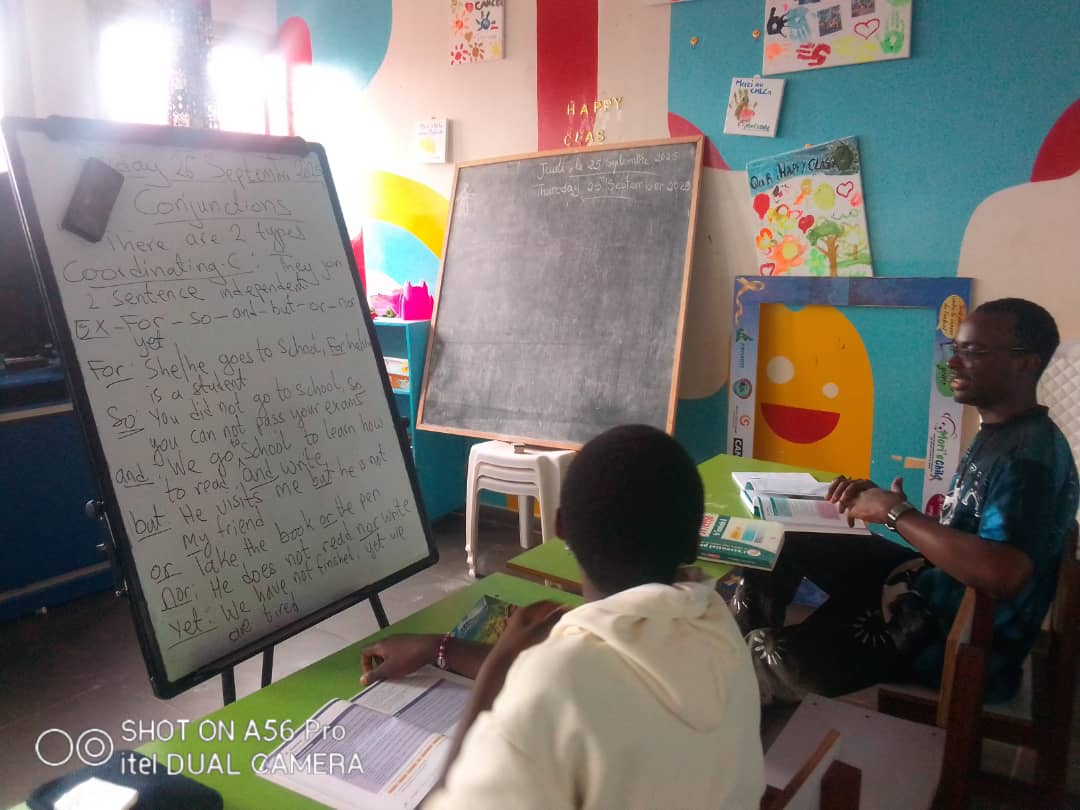 26 September 2025
Conjunctions
There are 2 types
Coordinating.C: They join
2 sentence independent
EX - For - so - and - but - or - nor
yet
For: She/he goes to School, For he/she
is a student
So: You did not go to school, so
you can not pass your exams
and: We go to School to learn how
to read and write
but: He visits me but he is not
My friend
or Take the book or the pen
Nor: He does not read nor write
yet: We have not finished, yet we
are tired
Jeudi, le 25 Septembre 2025
Thursday 25th September 2025
HAPPY
CLAS
Merci au
OUR HAPPY CLAS
Mori'child
SHOT ON A56 Pro
itel DUAL CAMERA